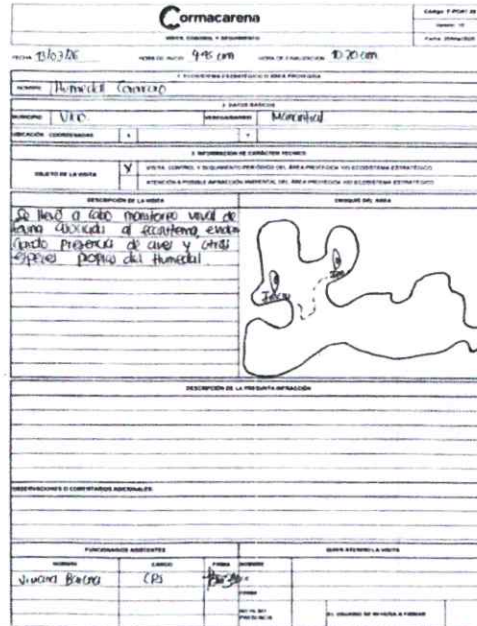 Cormacarena
VISITA, CONTROL Y SEGUIMIENTO
FECHA 13/03/26 HORA DE INICIO 9:45 am HORA DE FINALIZACIÓN 10:20 am
1. ECOSISTEMA ESTRATÉGICO O ÁREA PROTEGIDA
NOMBRE Humedal
2. DATOS BÁSICOS
MUNICIPIO V/cio VEREDA/BARRIO Manantial
UBICACIÓN COORDENADAS X Y
3. INFORMACIÓN DE CARÁCTER TÉCNICO
OBJETO DE LA VISITA X VISITA, CONTROL Y SEGUIMIENTO PERIÓDICO DEL ÁREA PROTEGIDA Y/O ECOSISTEMA ESTRATÉGICO
ATENCIÓN A POSIBLE INFRACCIÓN AMBIENTAL DEL ÁREA PROTEGIDA Y/O ECOSISTEMA ESTRATÉGICO
DESCRIPCIÓN DE LA VISITA
Se llevó a cabo monitoreo visual de
fauna asociada al ecosistema, eviden
ciando presencia de aves y otras
especies propias del Humedal
CROQUIS DEL ÁREA
DESCRIPCIÓN DE LA PRESUNTA INFRACCIÓN
OBSERVACIONES O COMENTARIOS ADICIONALES
FUNCIONARIOS ASISTENTES
NOMBRE CARGO FIRMA
CPS
QUIEN ATENDIÓ LA VISITA
NOMBRE
FIRMA
EL USUARIO SE REHUSA A FIRMAR